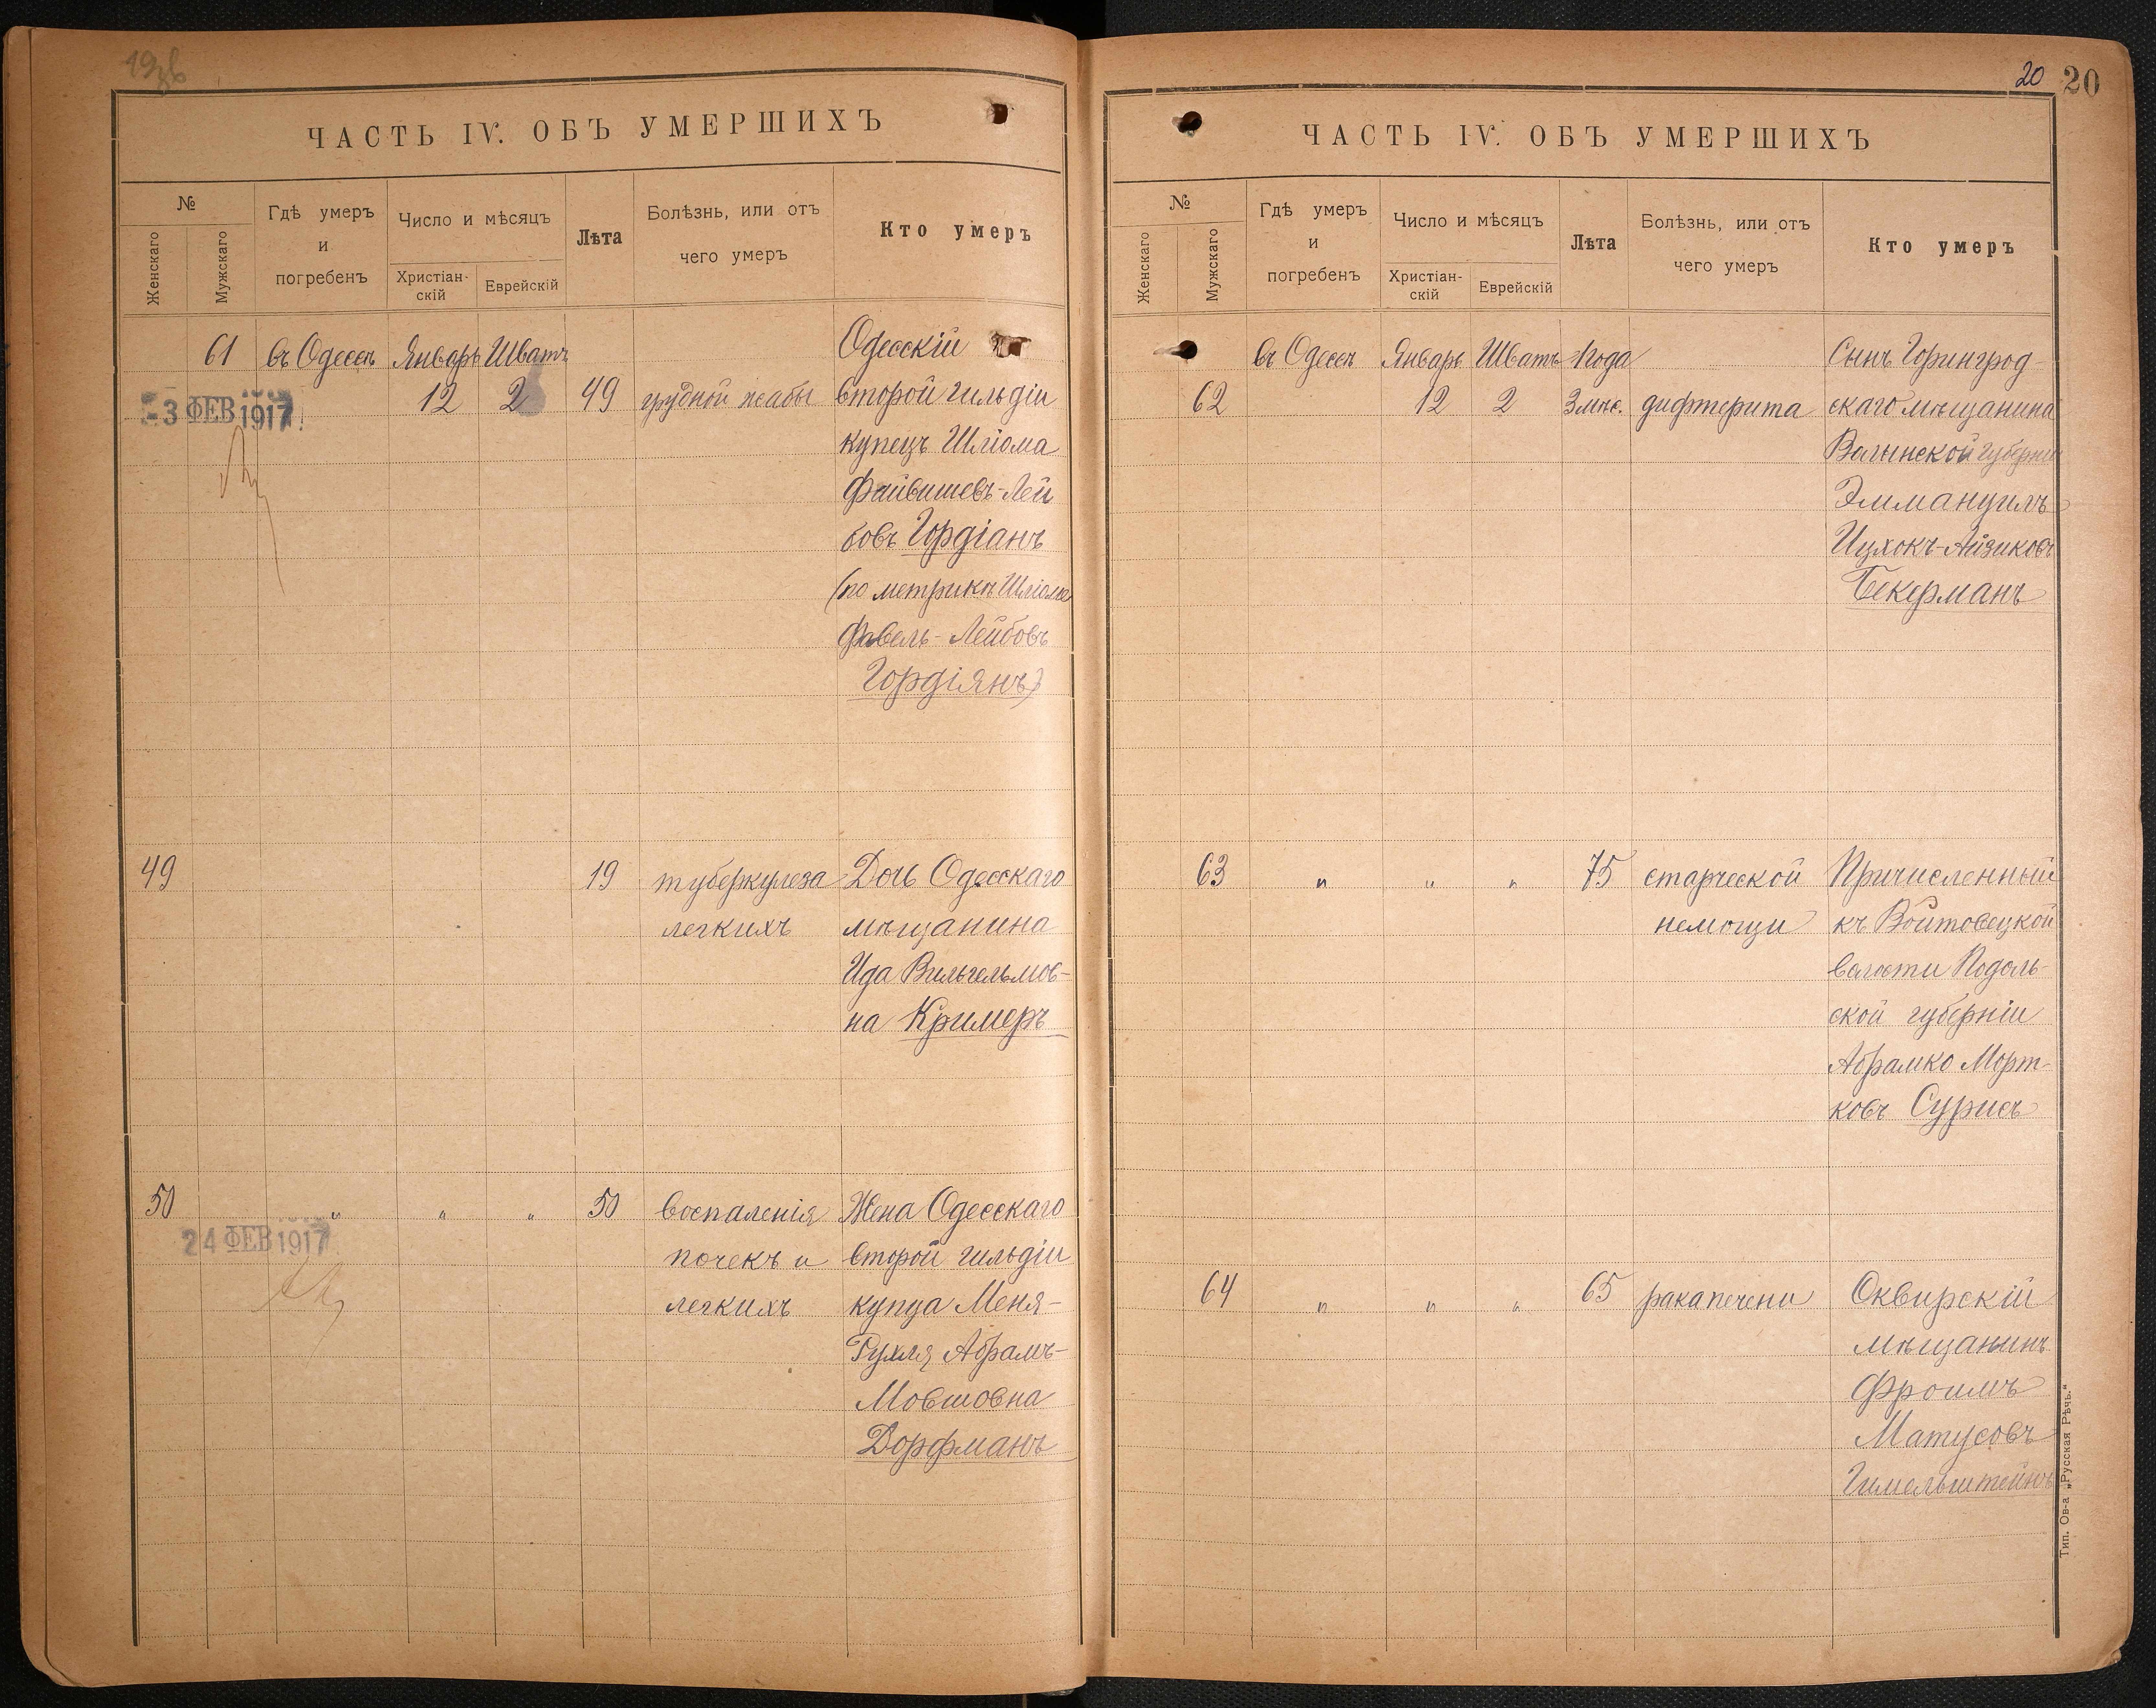 19об
ЧАСТЬ IV. ОБЪ УМЕРШИХЪ
№
Женскаго
Мужскаго
Гдѣ умеръ
и
погребенъ
Число и мѣсяцъ
Христіан-
скій
Еврейскій
Лѣта
Болѣзнь, или отъ
чего умеръ
Кто умеръ
61 въ Одессѣ Январь Шватъ Одесскій
-3 ФЕВ 1917 12 2 49 грудной жабы второй гильдіи
купецъ Шлiома
Файвишевъ-Лей
бовъ Гордіанъ
(по метрикѣ Шлiома
Фавель-Лейбовъ
Гордіянъ)
49 19 туберкулеза Дочь Одесскаго
легкихъ мѣщанина
Ида Вильгельмов-
на Кримеръ
50 " " " 50 воспаленія Жена Одесскаго
24 ФЕВ 1917 почекъ и второй гильдіи
легкихъ купца Меня-
Рухля Абрамъ-
Мовшовна
Дорфманъ
20 20
ЧАСТЬ IV. ОБЪ УМЕРШИХЪ
№
Женскаго
Мужскаго
Гдѣ умеръ
и
погребенъ
Число и мѣсяцъ
Христіан-
скій
Еврейскій
Лѣта
Болѣзнь, или отъ
чего умеръ
Кто умеръ
въ Одессѣ Январь Шватъ 1 года Сынъ Горинград-
62 12 2 3 мѣс. дифтерита скаго мѣщанина
Волынской губерніи
Эммануилъ
Ицхокъ-Айзиковъ
Бекерманъ
63 " " " 75 старческой Причисленный
немощи къ Войтовецкой
волости Подоль-
ской губерніи
Абрамко Морт-
ковъ Сурисъ
64 " " " 65 рака печени Сквирскій
мѣщанинъ
Фроимъ
Матусовъ
Гимельштейнъ
Тип. Ов-а „Русская Рѣчь."